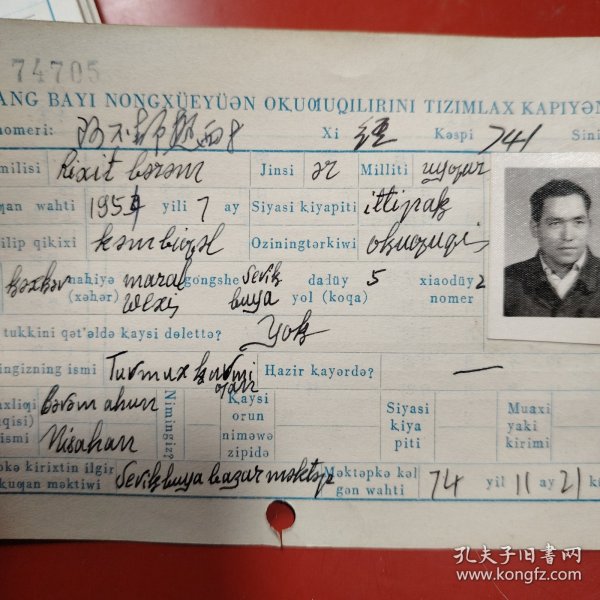 74705
ANG BAYI NONGXÜEYÜƏN OⱪUƢUQILIRINI TIZIMLAX KAPIYƏ
nomeri: Xi 经 Kəspi 741 Sini
milisi Rixit bərəm Jinsi ər Milliti uyƣur
ƣan wahti 1954 yili 7 ay Siyasi kiyapiti ittipaⱪ
ilip qikixi kəmbiƣəl Oziningtərkiwi oⱪuƣuqi
nahiyə (xəhər) maral wexi gongshe Seviⱪ buya daɫüy yol (koqa) 5 xiaodüy nomer 2
tukkini qət'əldə kaysi dəlettə? Yoⱪ
ningizning ismi Turmux Ⱨazir kayərdə? —
axliƣi Bərəm ahun Nimingiz? Ⱪaysi orun nimǝwǝ zipidə Siyasi kiya piti Muaxi yaki kirimi
ismi Nisahan
əkə kirixtin ilgir kuƣan məktiwi Seviⱪbuya bazar məktəp Məktəpkə kəl gən wahti 74 yil 11 ay 21 k
孔夫子旧书网
www.kongfz.com